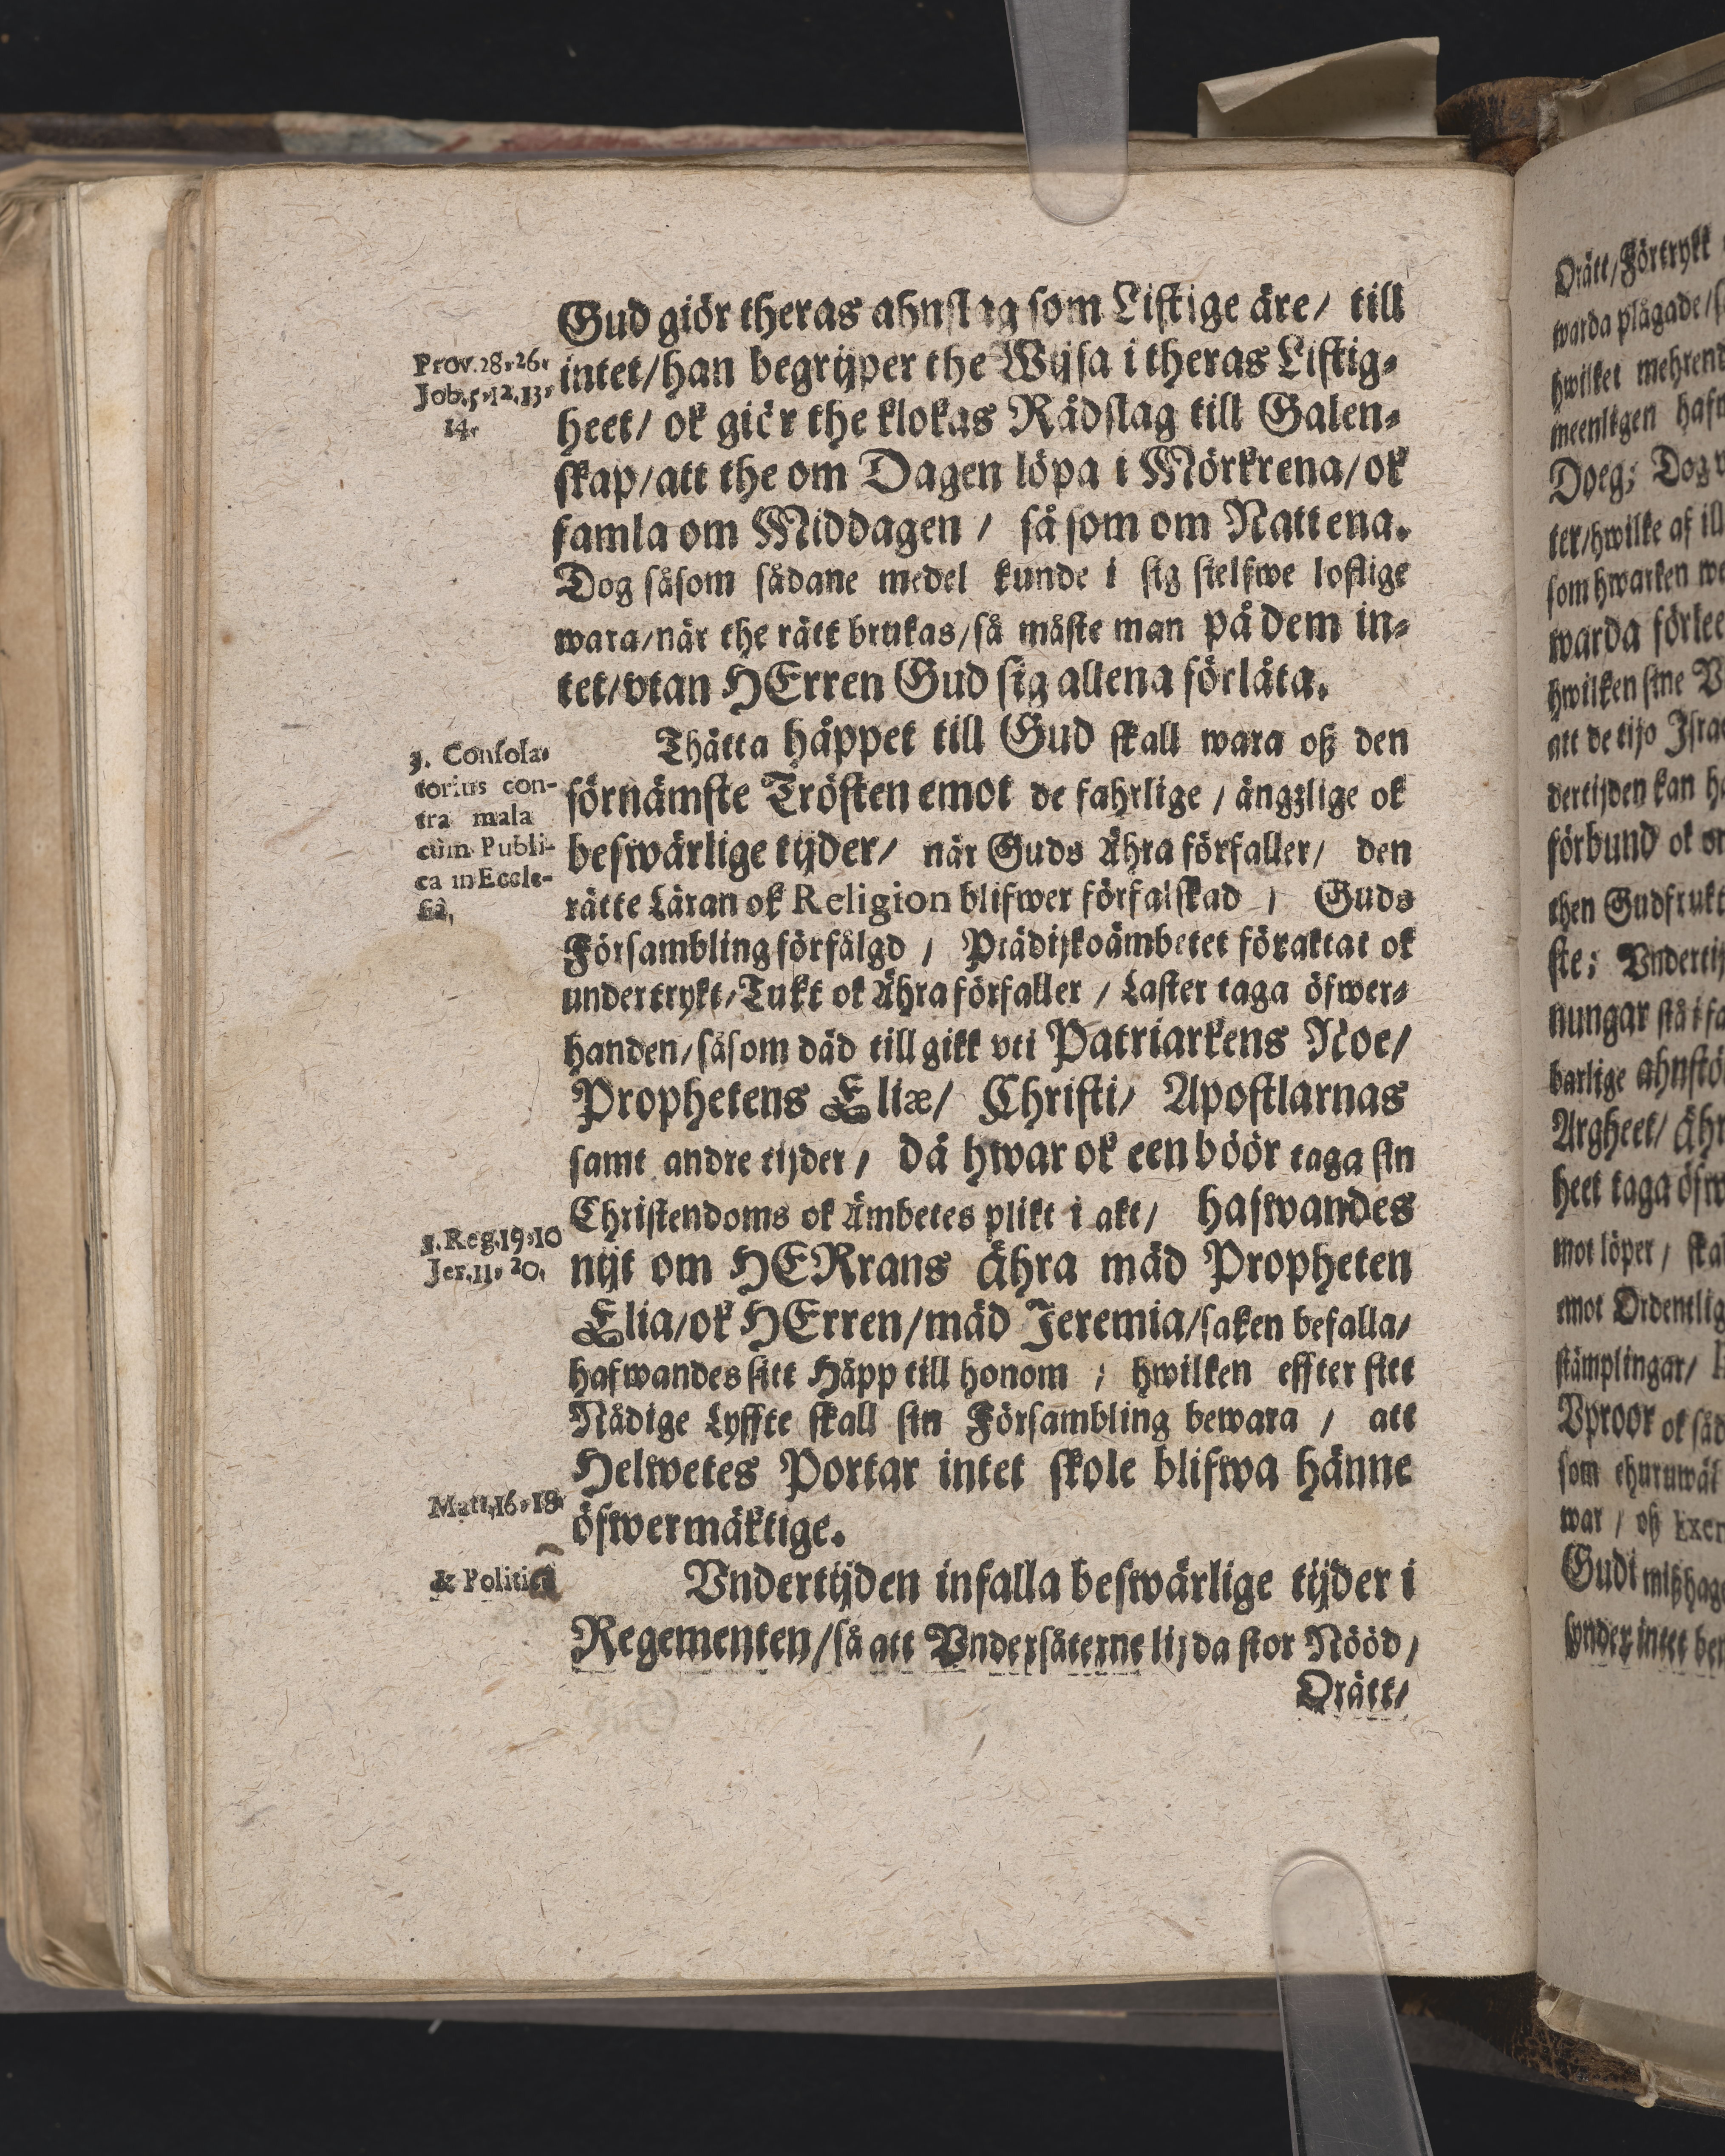 Gud giör theras ahnslag som Listige äre/ till
Prov. 28, 26.
intet/han begrijper the Wijsa i theras Listig-
Job. 5, 12. 13,
14.
heet/ ok giör the klokas Rådslag till Galen-
skap/att the om Dagen löpa i Mörkrena/ok
famla om Middagen / så som om Nattena.
Dog såsom sådane medel kunde i sig sielfwe loflige
wara/när the rätt brukas/så måste man på dem in-
tet/vtan HErren Gud sig allena förlåta.
Thätta håppet till Gud skall wara oß den
3. Consola-
torius con-
tra mala
cùm Publi-
ca in Eccle-
siâ,
förnämste Trösten emot de fahrlige / ängzlige ok
beswärlige tijder/ när Guds Ähra förfaller/ den
rätte Läran ok Religion blifwer förfalskad / Guds
Försambling förfålgd / Prädijkoämbetet föraktat ok
undertrykt/Tukt ok Ähra förfaller / Laster taga öfwer-
handen/såsom däd till gikk vti Patriarkens Noe/
Prophetens Eliæ/ Christi/ Apostlarnas
samt andre tijder / då hwar ok een böör taga sin
Christendoms ok Ämbetes plikt i akt/ hafwandes
Reg. 19, 10
Jer. 11, 20.
nijt om HERrans Ähra mäd Propheten
Elia/ok HErren/mäd Jeremia/saken befalla/
hafwandes sitt Håpp till honom ; hwilken effter sitt
Nådige Lyffte skall sin Försambling bewara / att
Helwetes Portar intet skole blifwa hänne
Matt. 16, 18
öfwermäktige.
& Politiâ
Vndertijden infalla beswärlige tijder i
Regementen/så att Vndersåterne lijda stor Nööd/
Orätt/
Orätt/Förtrykt
warda plågade/
hwilket mehrend
meenligen
Doeg;
ter/hwilke af
som hwarken
warda
hwilken sine
att de tijo
dertijden kan
förbund ok
then Gudfrukt
ste;
nungar stå i
barlige
Argheet/
heet taga
mot löper / ska
emot Ordentlig
stämplingar/
Vproor ok såd
som ehuruwäl
war / oß
Gudi mißhag
synder intet